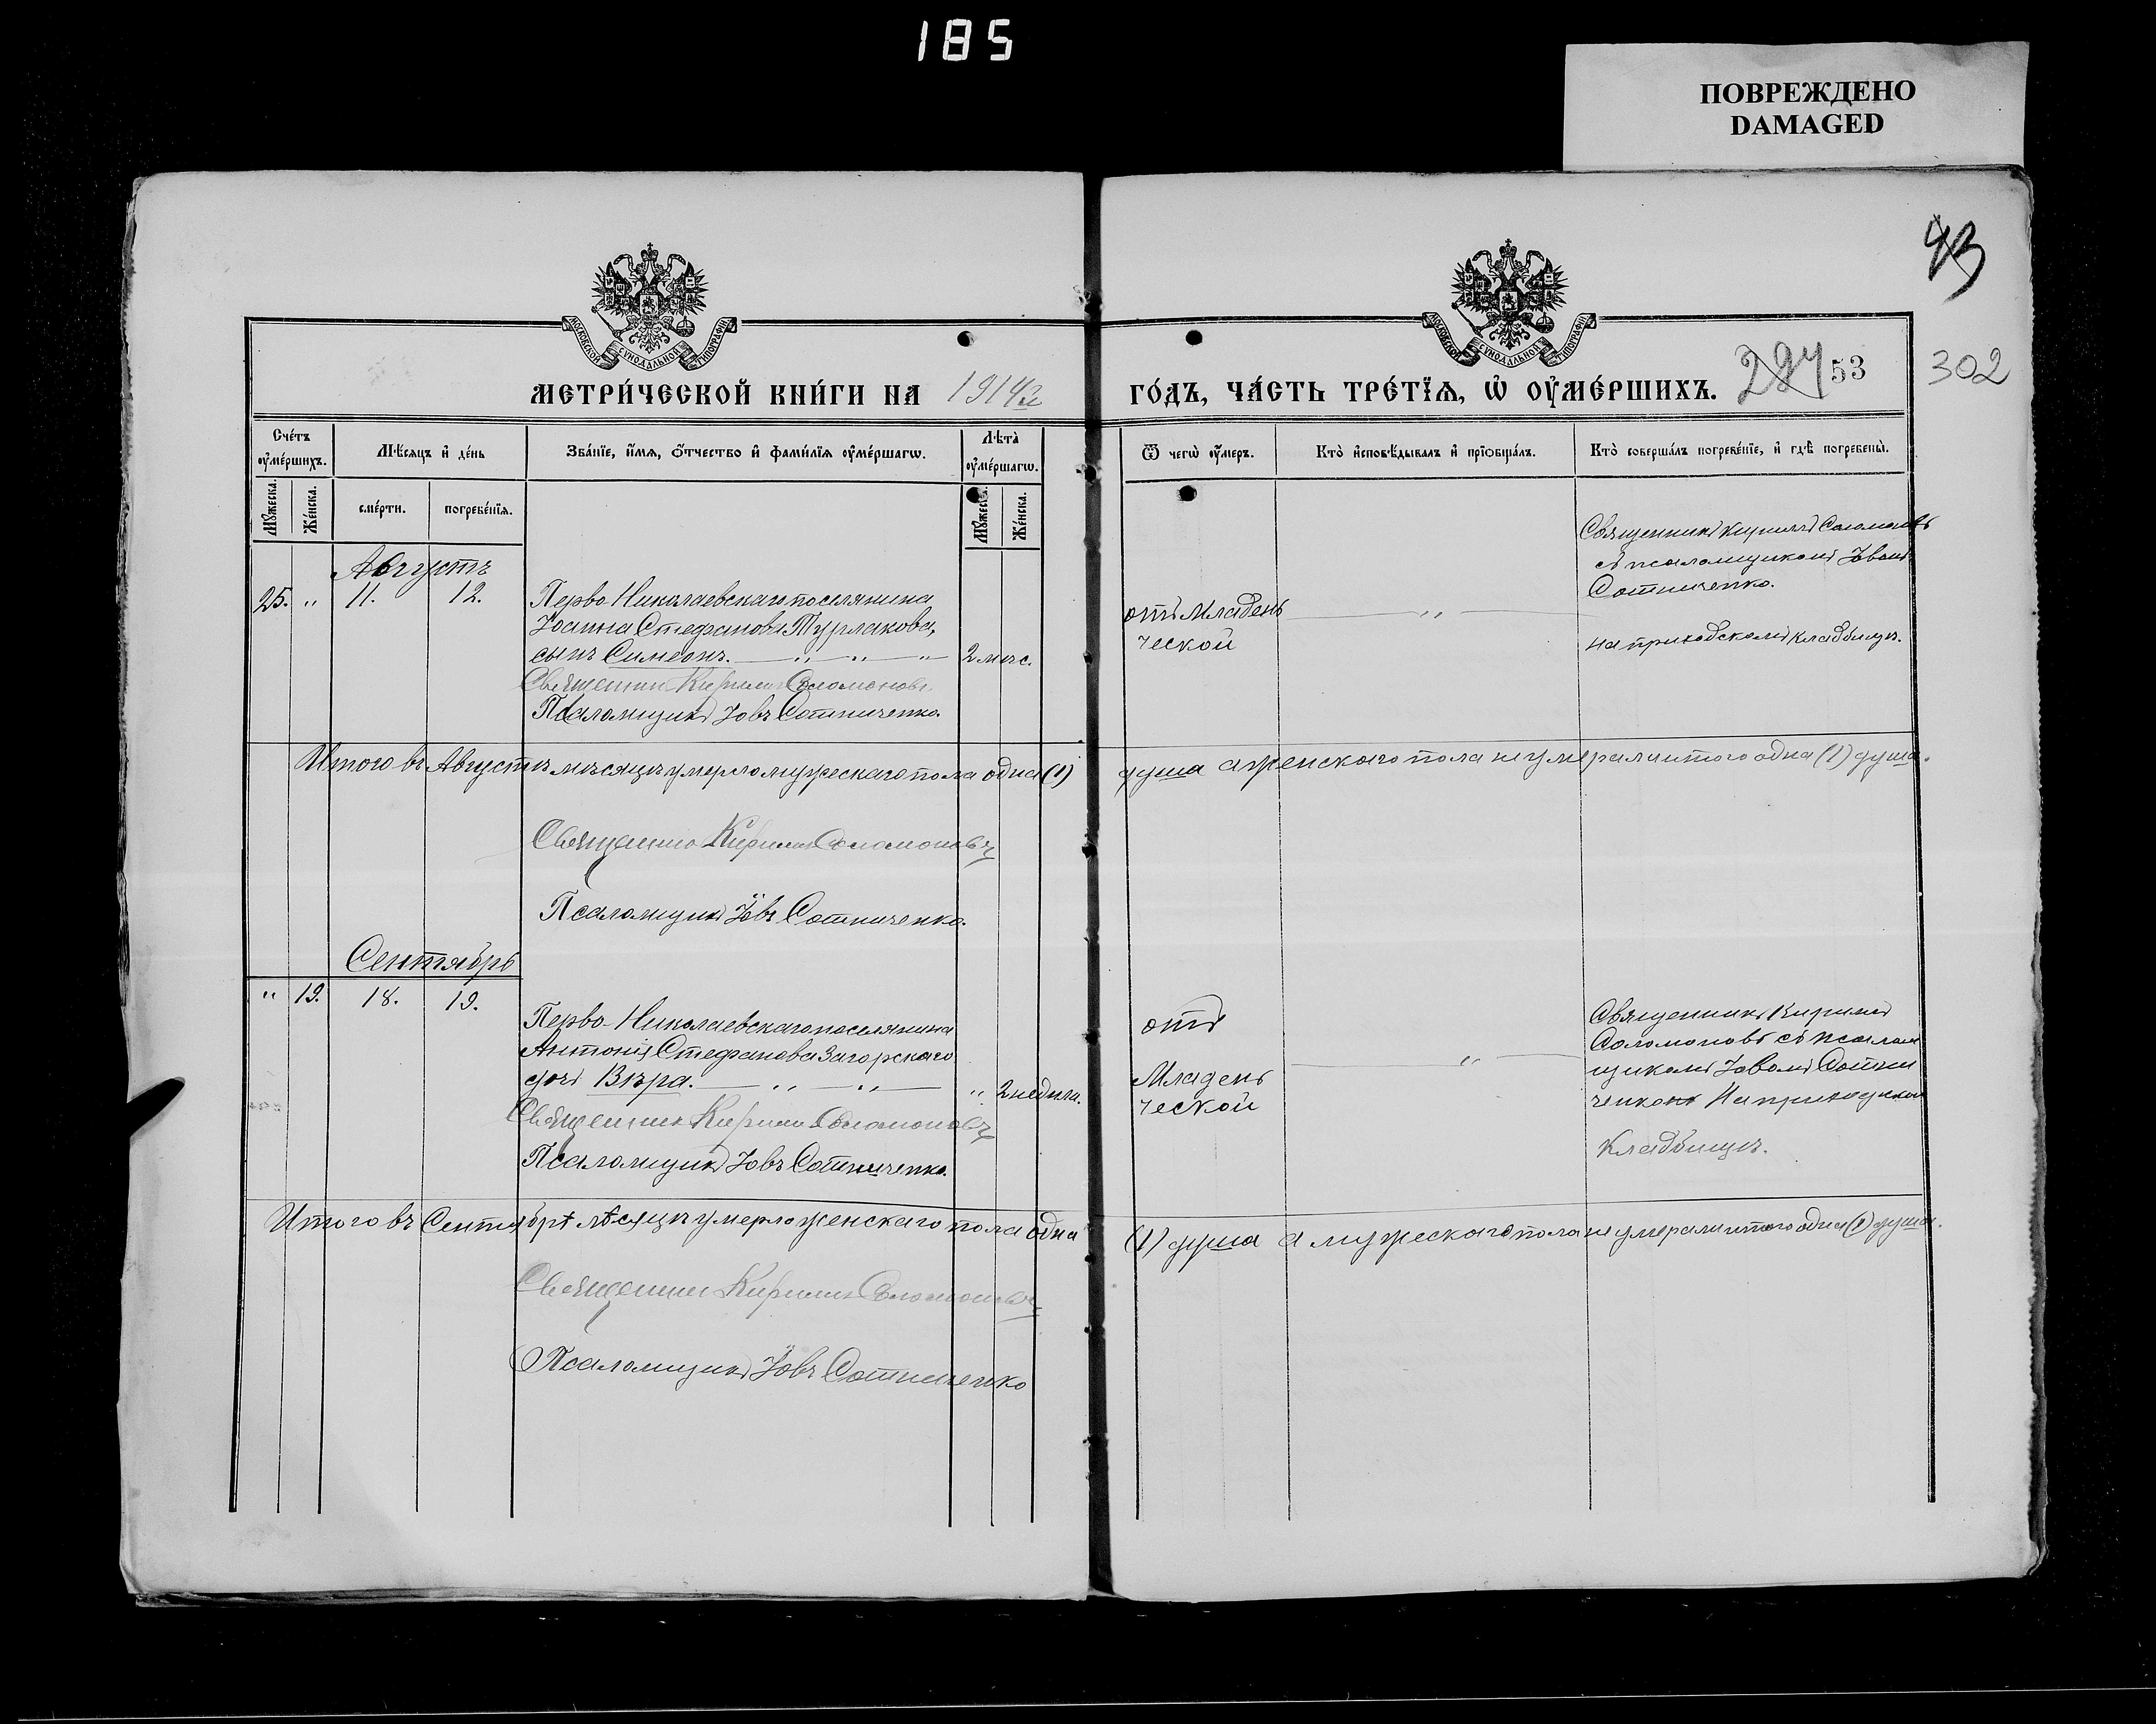 185
ПОВРЕЖДЕНО
DAMAGED
МОСКОВСКОЙ СѴНОДАЛЬНОЙ ТИПОГРАФІИ
МОСКОВСКОЙ СѴНОДАЛЬНОЙ ТИПОГРАФІИ
МЕТРИ́ЧЕСКОЙ КНИ́ГИ НА 1914 г
ГО́ДЪ, ЧА́СТЬ ТРЕ́ТЇѦ, Ѡ҆ ОУ҆МЕ́РШИХЪ.
53
302
Сче́тъ оу҆ме́ршихъ.
Мꙋ́жеска.
Же́нска.
Мѣ́сѧцъ и҆ де́нь
сме́рти.
погребе́нїѧ.
Зва́нїе, и҆́мѧ, ѻ҆́тчество и҆ фами́лїѧ оу҆ме́ршагѡ.
Лѣ̀та̀ оу҆ме́ршагѡ.
Мꙋ́жеска.
Же́нска.
Ѿ чегѡ̀ оу҆́меръ.
Кто̀ и҆сповѣ́дывалъ и҆ прїѡбща́лъ.
Кто̀ соверша́лъ погребе́нїе, и҆ гдѣ̀ погребены̀.
Августъ
25. „ 11. 12.
Перво-Николаевскаго поселянина
Іоанна Стефанова Турлакова,
сынъ Симеонъ. — „ — „ — „ 2 мѣс.
Священник Кирилл Соломоновъ
Псаломщикъ Іовъ Сотниченко.
отъ Младень
ческой
„
Священникъ Кириллъ Соломоновъ
съ псаломщикомъ Іовомъ
Сотниченко.
на приходскомъ кладбищѣ.
Итого въ Августѣ мѣсяцѣ умерло мужескаго пола одна (1)
душа а женскаго пола не умерали итого одна (1) душа.
Священник Кирилл Соломоновъ
Псаломщикъ Іовъ Сотниченко.
Сентябрь
„ 19. 18. 19.
Перво-Николаевскаго поселянина
Антонія Стефанова Загорскаго
дочь Вѣра. — „ — „ — „ 2 недѣли.
Священник Кирилл Соломоновъ
Псаломщикъ Іовъ Сотниченко.
отъ
Младень
ческой
„
Священникъ Кириллъ
Соломоновъ съ псалом
щикомъ Іовомъ Сотни
ченко На приходском
кладбищѣ.
Итого въ Сентябрѣ мѣсяцѣ умерло женскаго пола одна
(1) душа а мужескаго пола не умерали итого одна (1) душа.
Священник Кирилл Соломоновъ
Псаломщикъ Іовъ Сотниченко